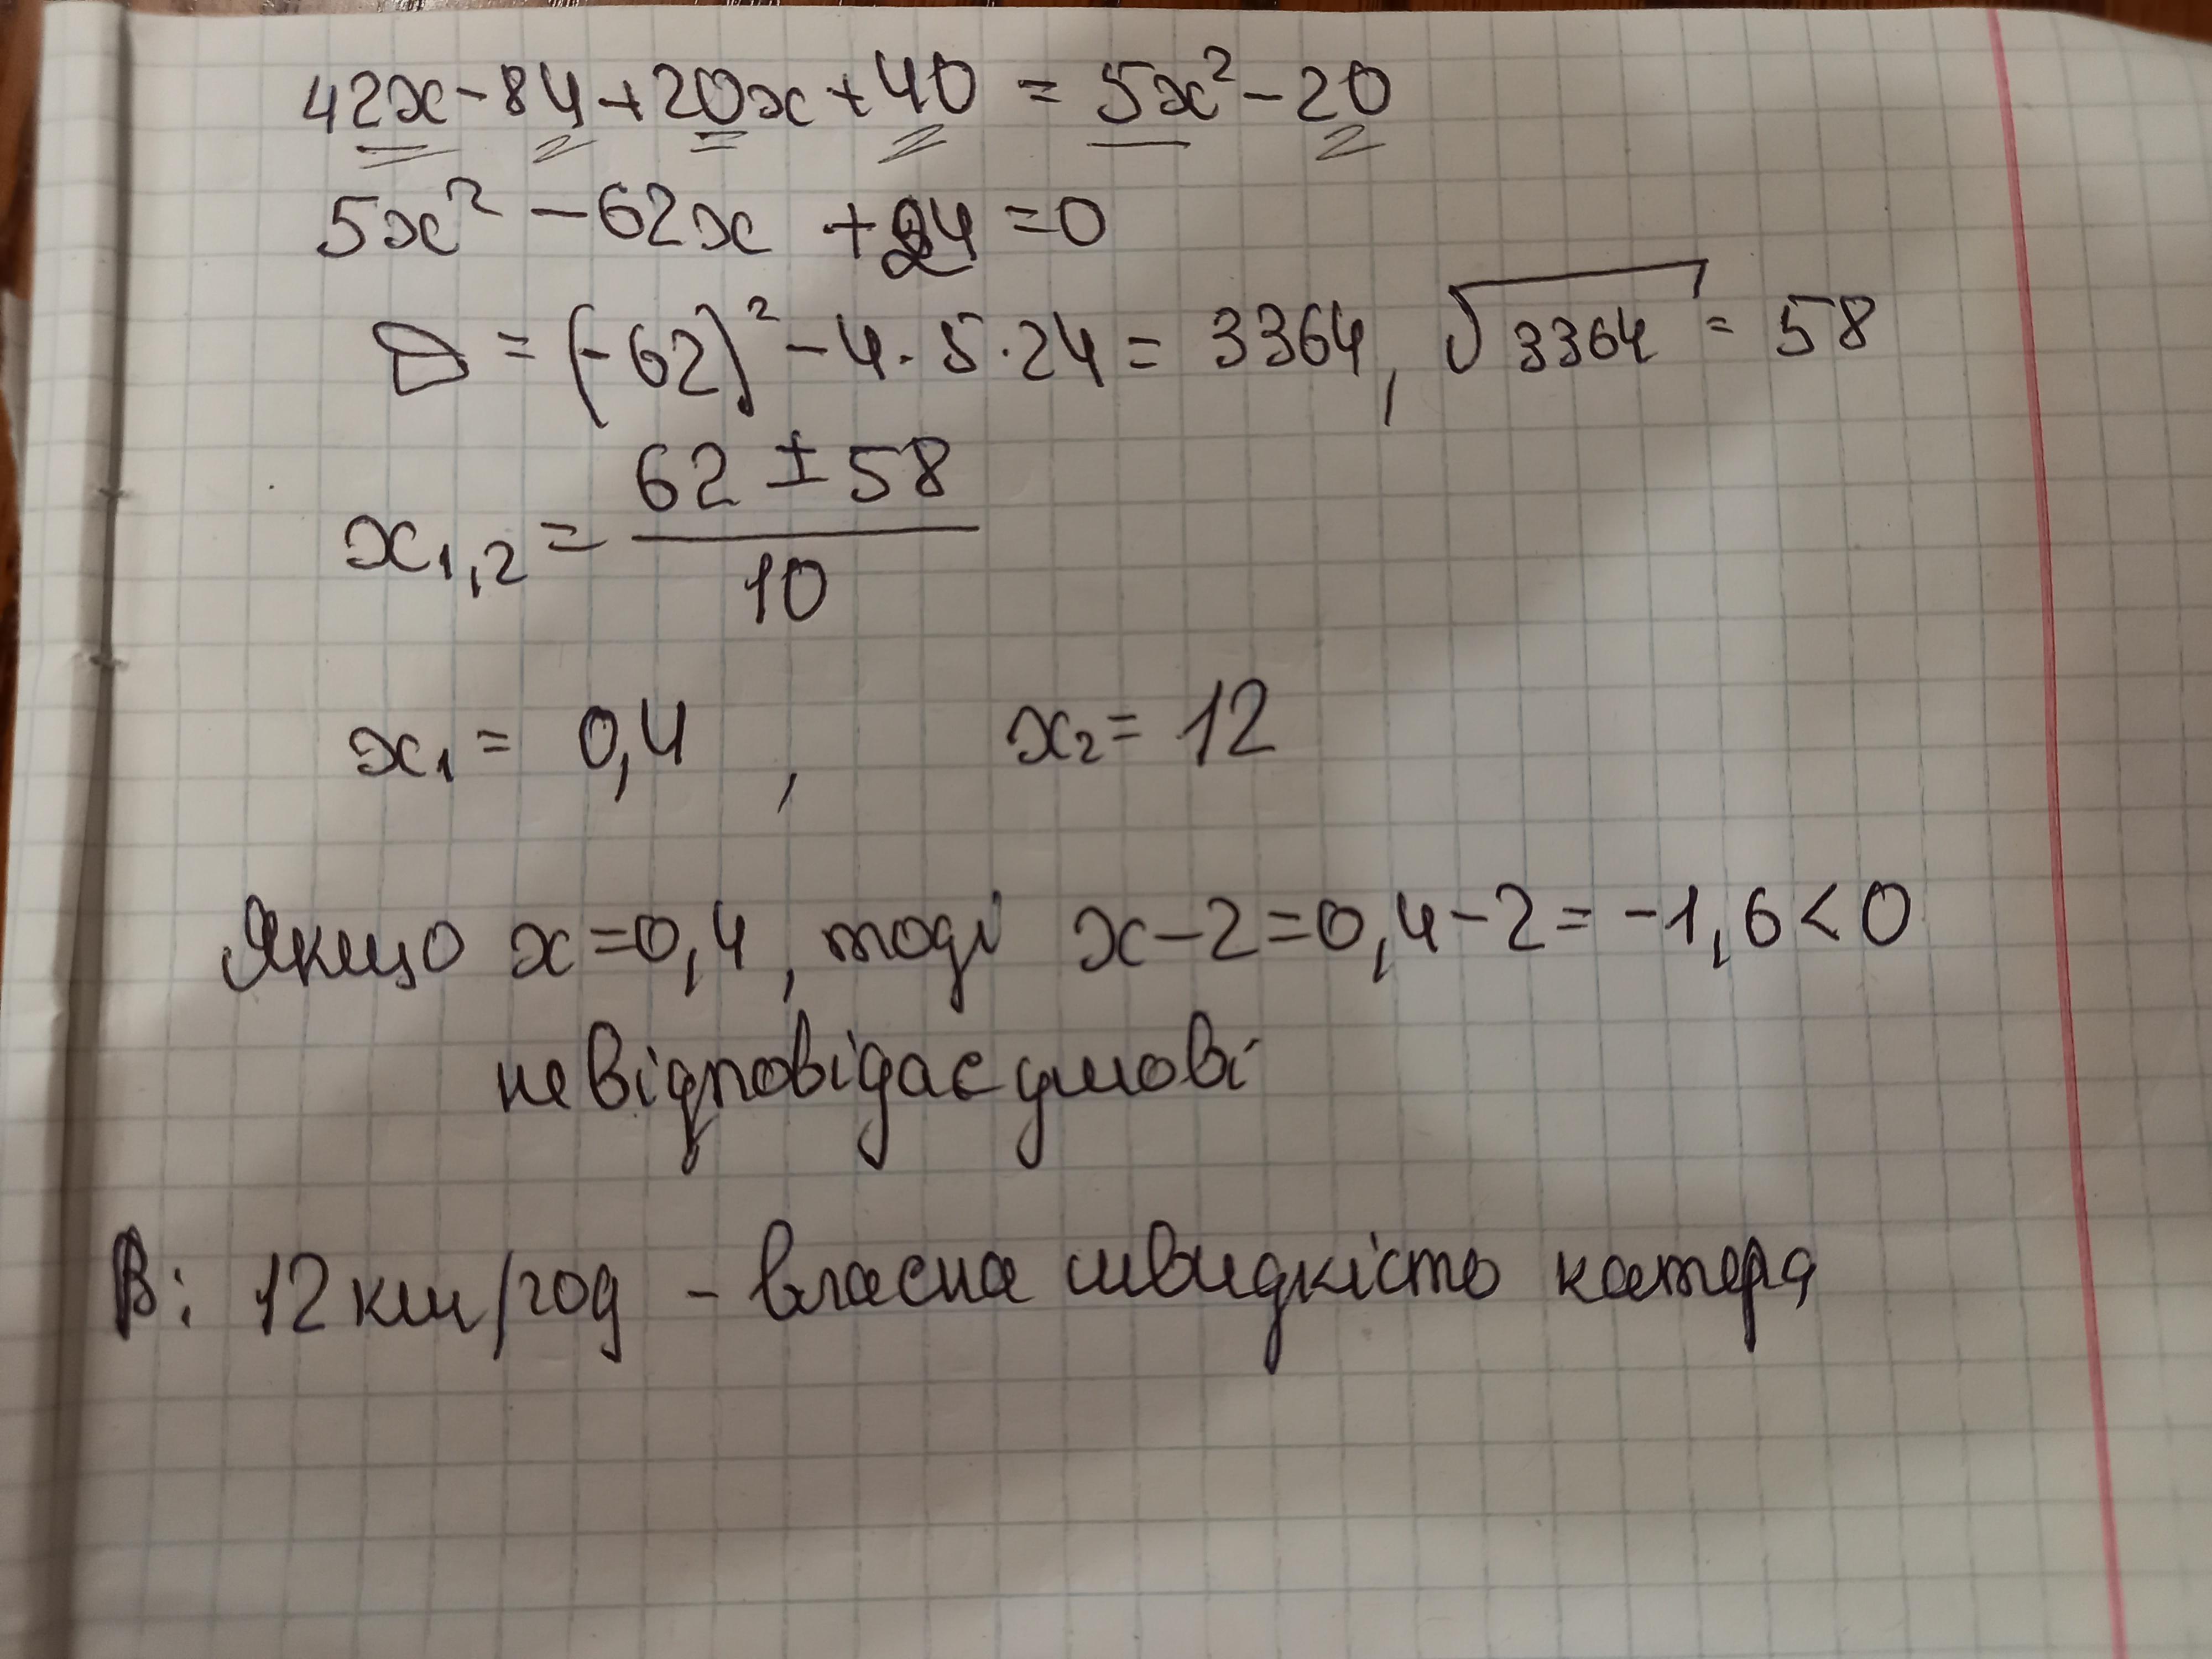 42x-84+20x+40 = 5x²-20
5x² -62x +24 =0
D = (-62)² -4·5·24 = 3364, √3364 = 58
x₁,₂ = (62 ± 58)/10
x₁ = 0,4 , x₂ = 12
Якщо x=0,4, тоді x-2=0,4-2=-1,6<0
не відповідає умові
В: 12 км/год - власна швидкість катера